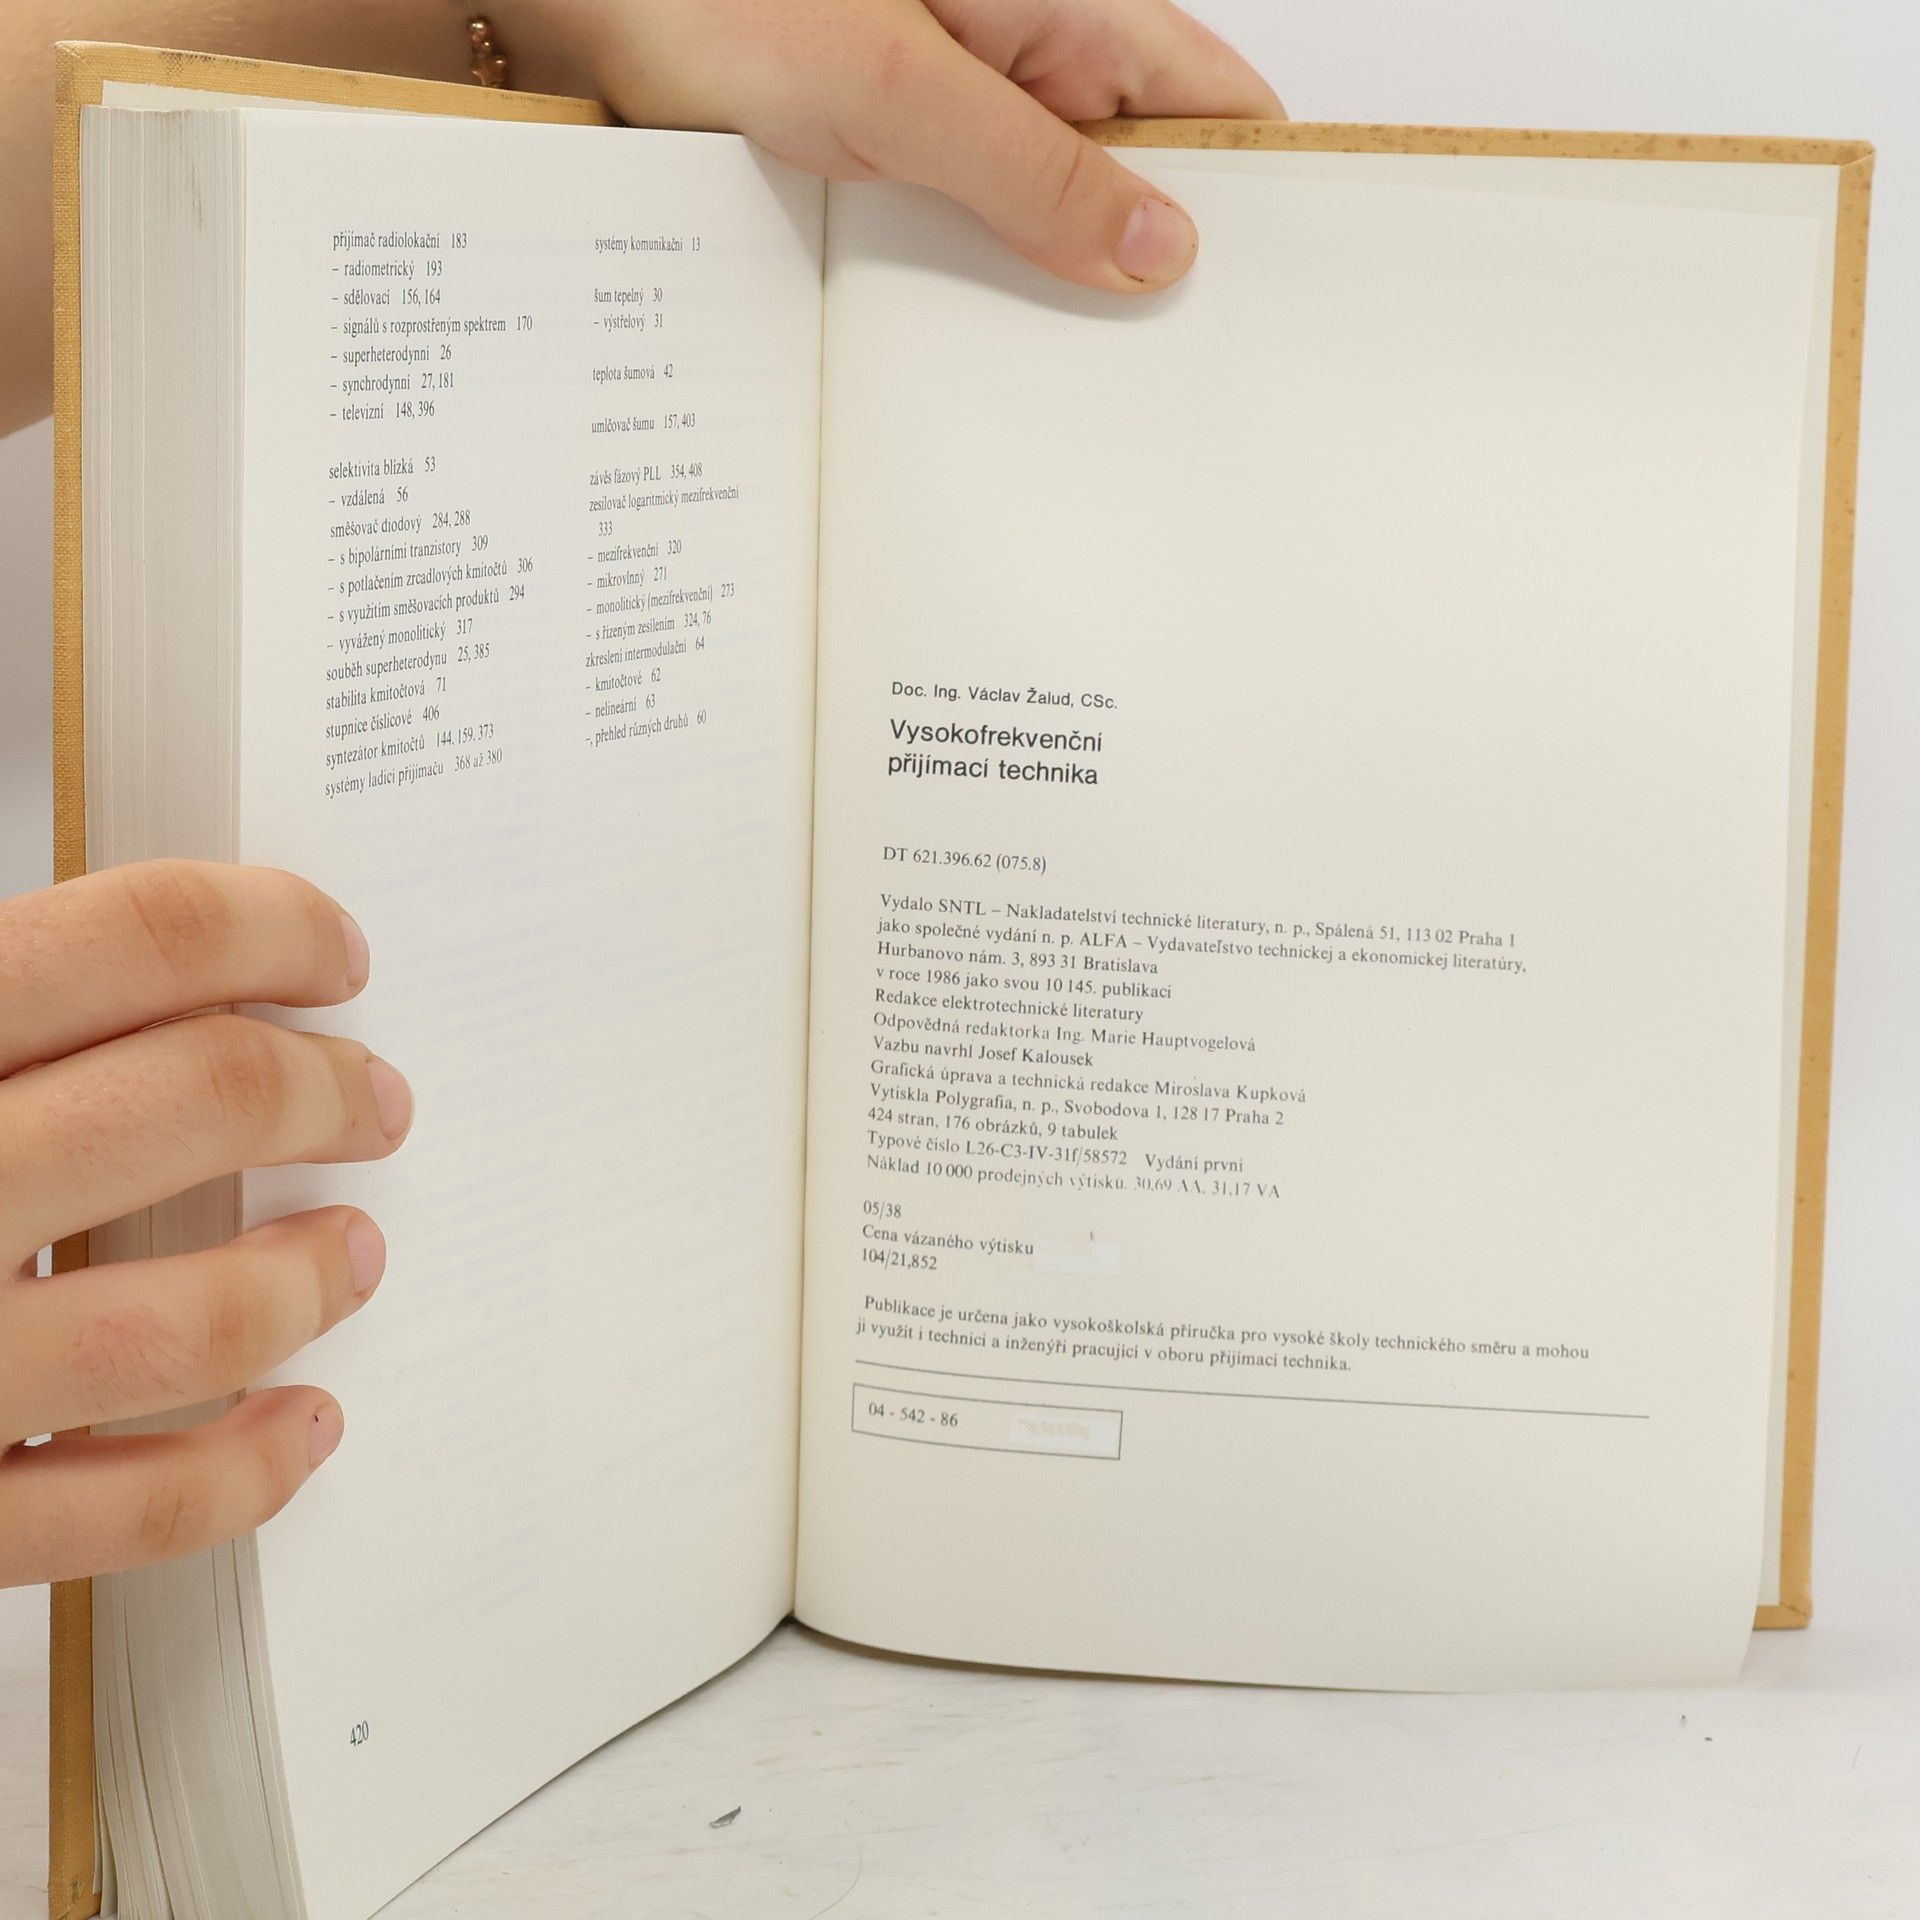 přijímač radiolokační 183
– radiometrický 193
– sdělovací 156, 164
– signálů s rozprostřeným spektrem 170
– superheterodynní 26
– synchrodynní 27, 181
– televizní 148, 396
selektivita blízká 53
– vzdálená 56
směšovač diodový 284, 288
– s bipolárními tranzistory 309
– s potlačením zrcadlových kmitočtů 306
– s využitím směšovacích produktů 294
– vyvážený monolitický 317
souběh superheterodynu 25, 385
stabilita kmitočtová 71
stupnice číslicové 406
syntezátor kmitočtů 144, 159, 373
systémy ladicí přijímačů 368 až 380
systémy komunikační 13
šum tepelný 30
– výstřelový 31
teplota šumová 42
umlčovač šumu 157, 403
závěs fázový PLL 354, 408
zesilovač logaritmický mezifrekvenční
333
– mezifrekvenční 320
– mikrovlnný 271
– monolitický (mezifrekvenční) 273
– s řízeným zesílením 324, 76
zkreslení intermodulační 64
– kmitočtové 62
– nelineární 63
–, přehled různých druhů 60
420
Doc. Ing. Václav Žalud, CSc.
Vysokofrekvenční
přijímací technika
DT 621.396.62 (075.8)
Vydalo SNTL – Nakladatelství technické literatury, n. p., Spálená 51, 113 02 Praha 1
jako společné vydání n. p. ALFA – Vydavateľstvo technickej a ekonomickej literatúry,
Hurbanovo nám. 3, 893 31 Bratislava
v roce 1986 jako svou 10 145. publikaci
Redakce elektrotechnické literatury
Odpovědná redaktorka Ing. Marie Hauptvogelová
Vazbu navrhl Josef Kalousek
Grafická úprava a technická redakce Miroslava Kupková
Vytiskla Polygrafia, n. p., Svobodova 1, 128 17 Praha 2
424 stran, 176 obrázků, 9 tabulek
Typové číslo L26-C3-IV-31f/58572 Vydání první
Náklad 10 000 prodejných výtisků. 30,69 AA. 31,17 VA
05/38
Cena vázaného výtisku
104/21,852
Publikace je určena jako vysokoškolská příručka pro vysoké školy technického směru a mohou
ji využít i technici a inženýři pracující v oboru přijímací technika.
04 - 542 - 86